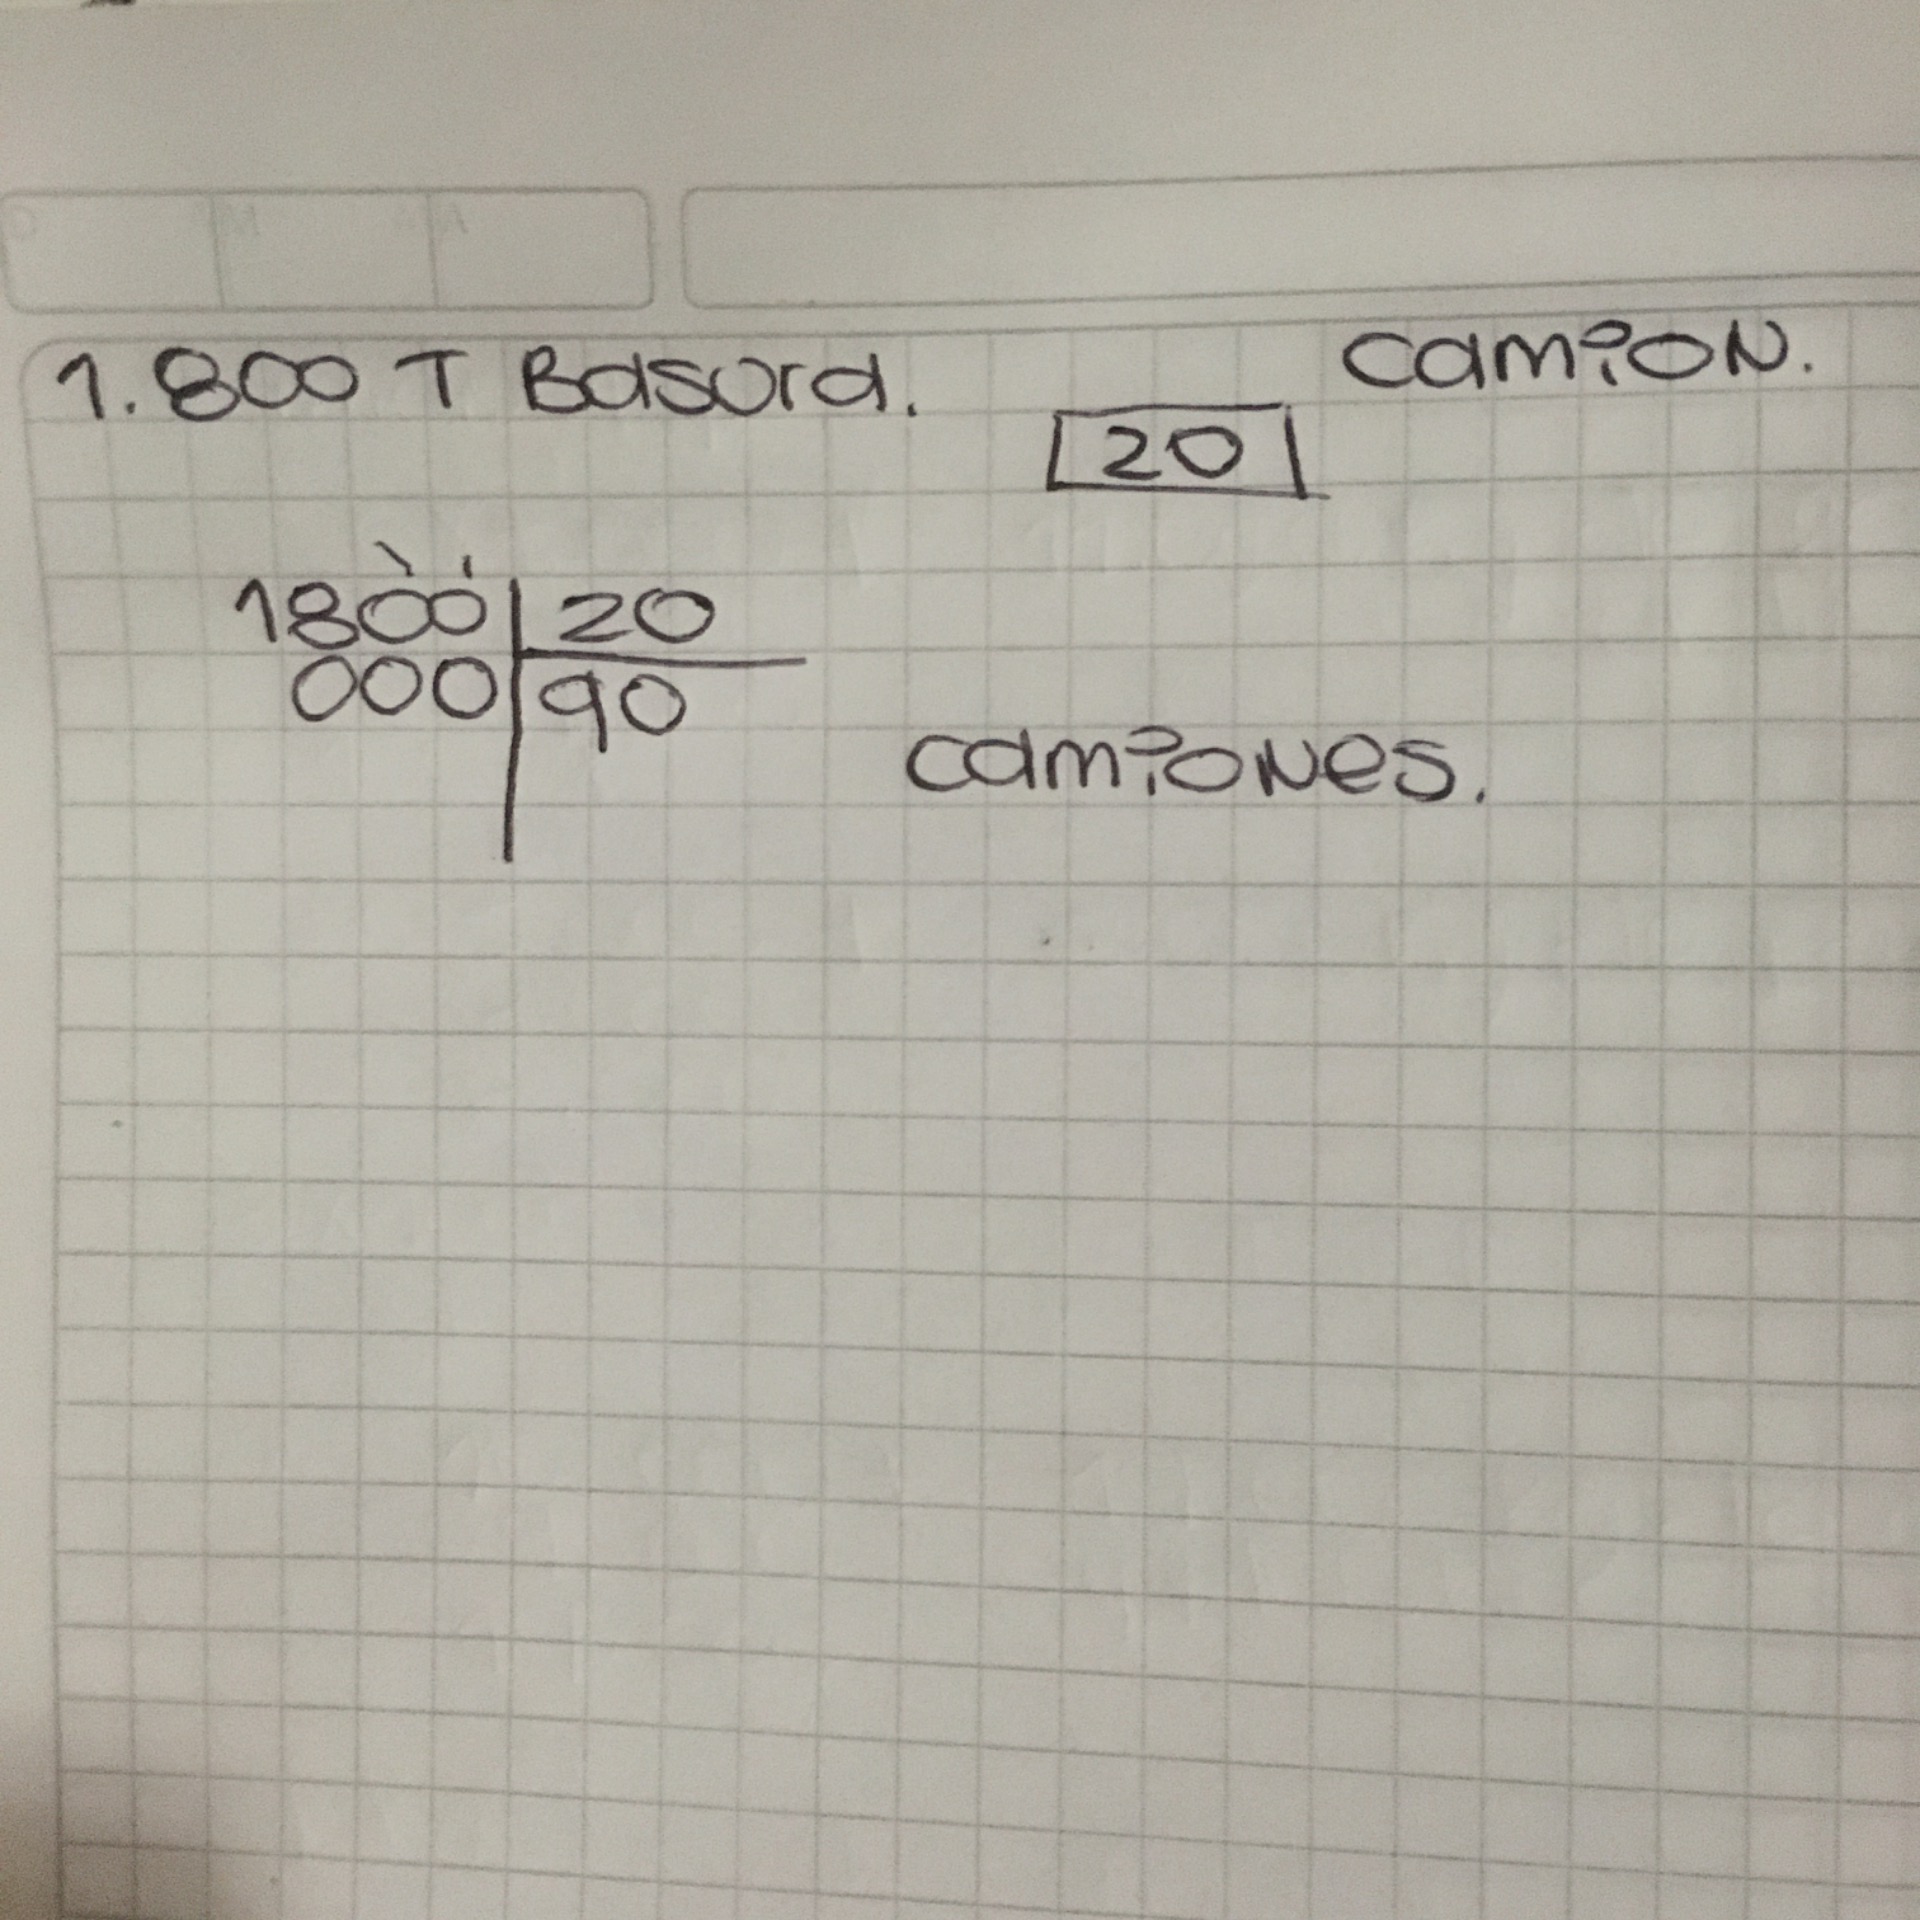 1.800 T Basura.
camion.
20
1800 | 20
000 | 90
camiones.